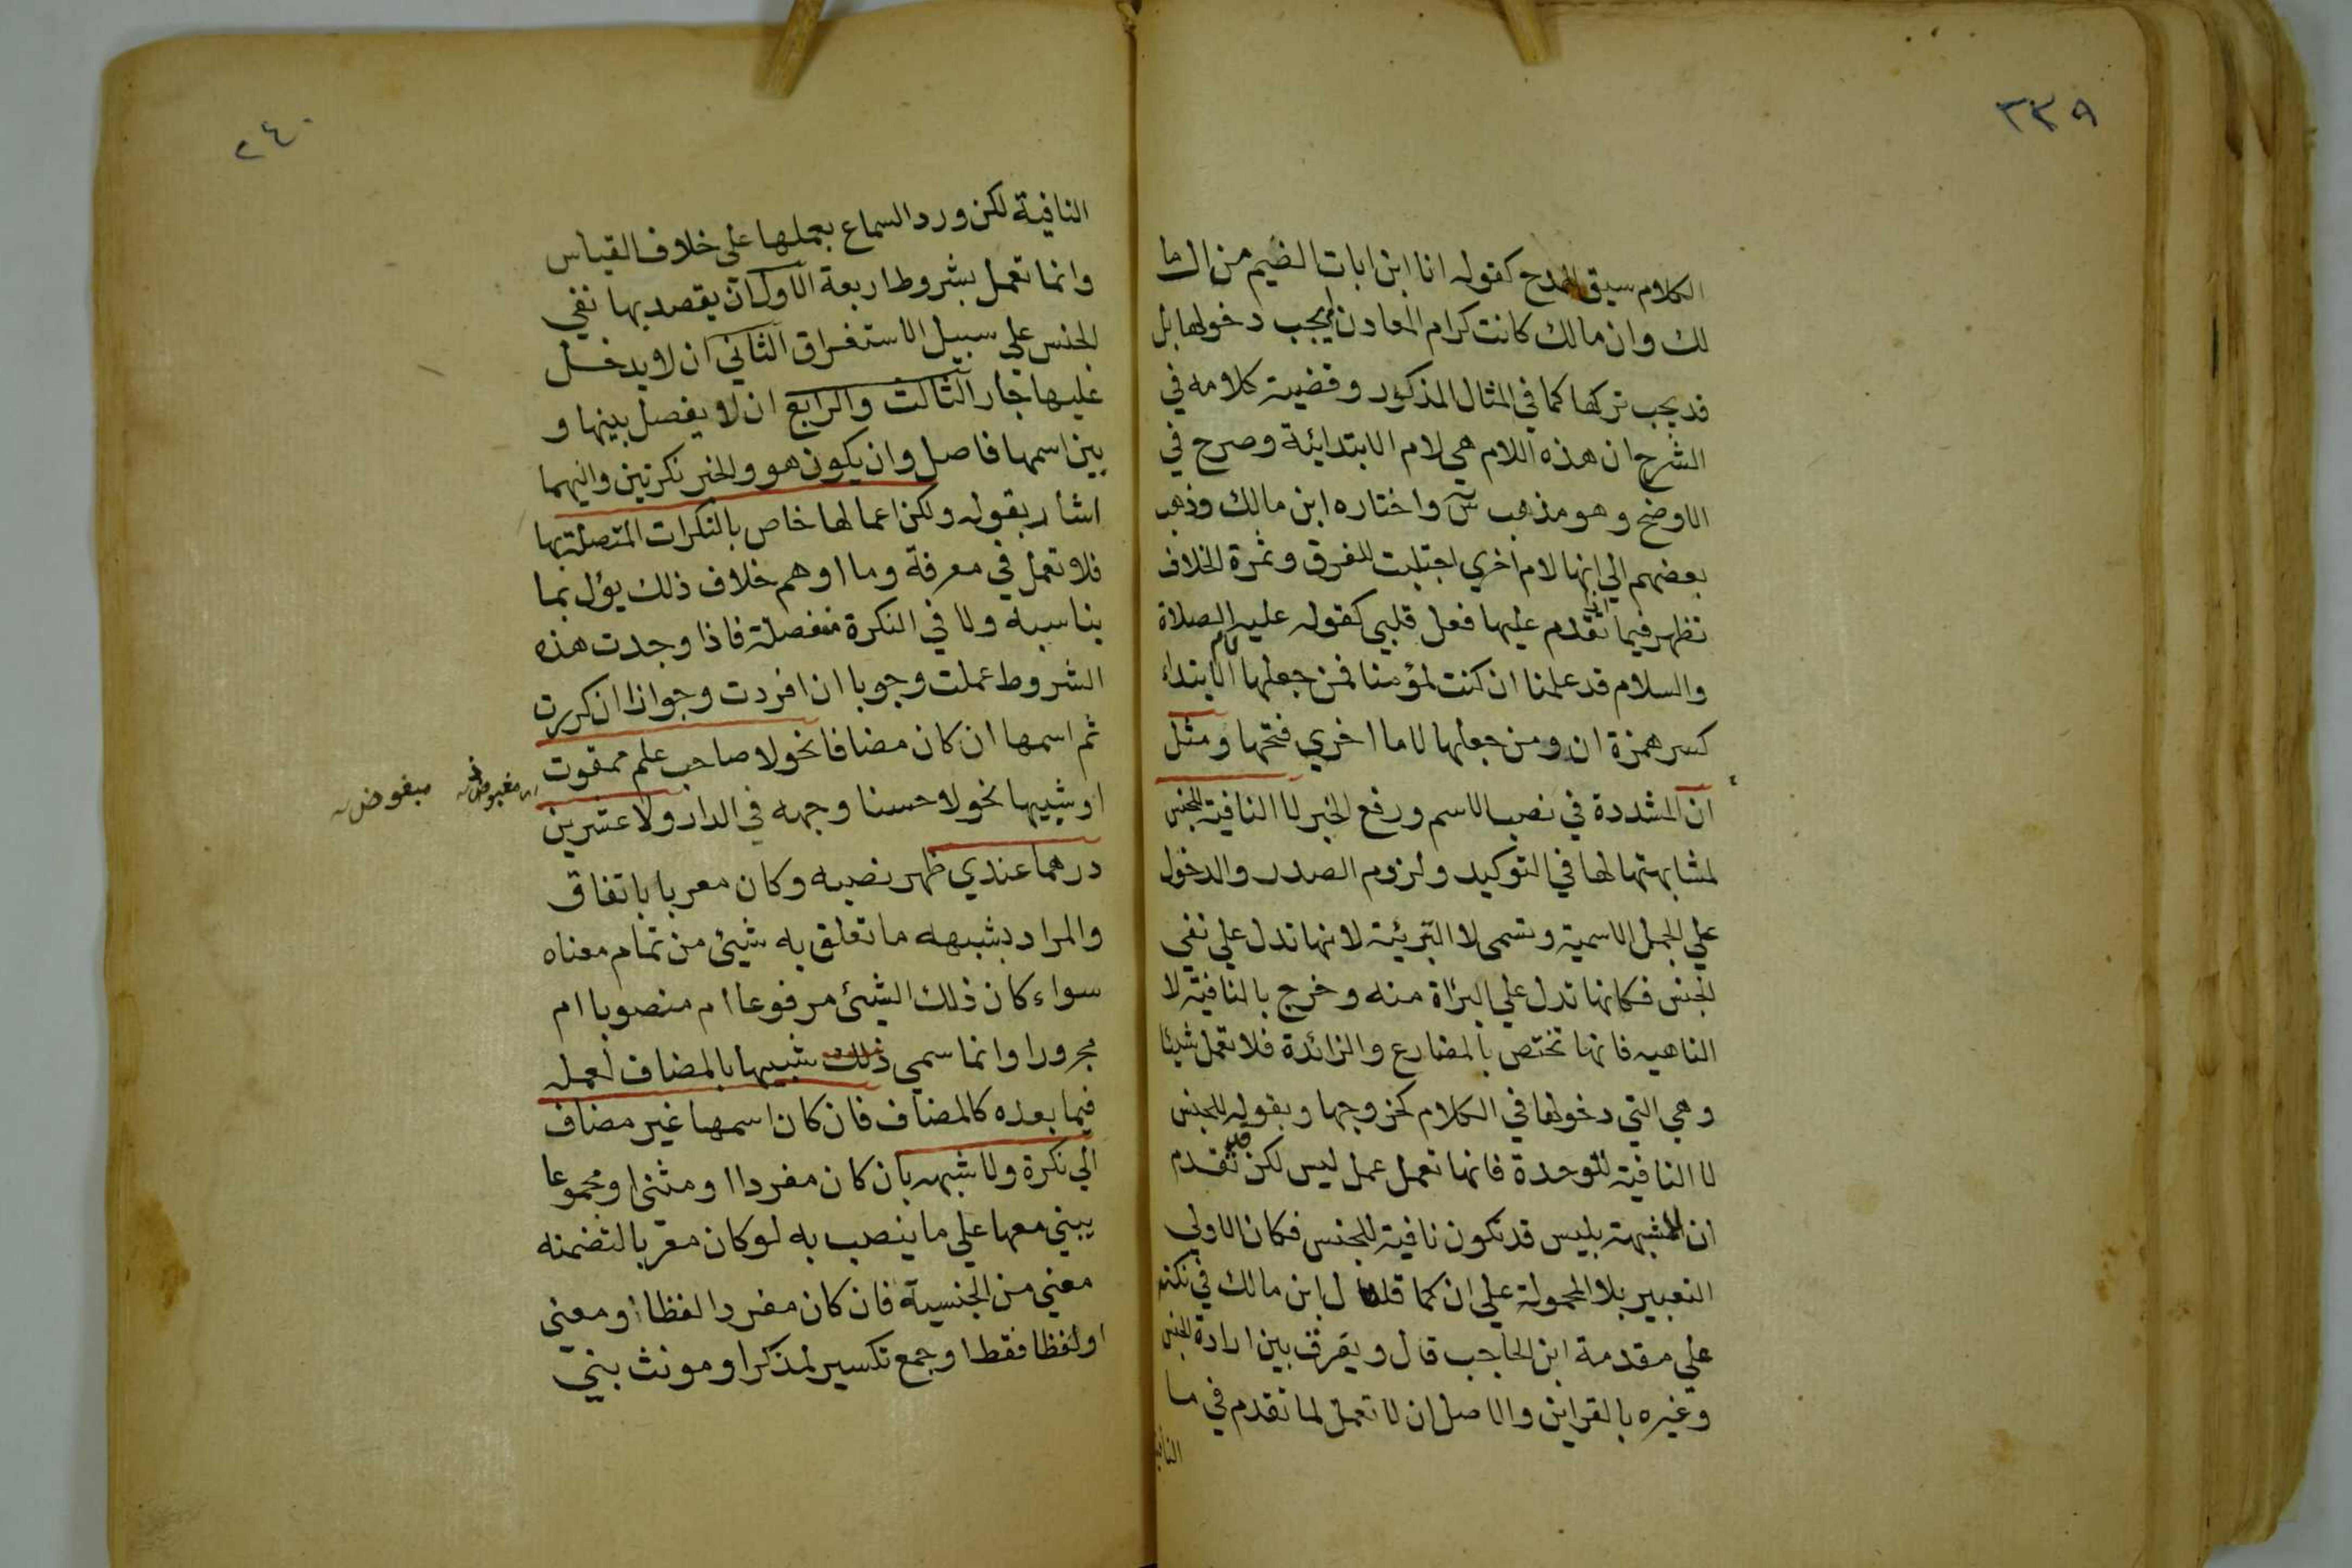 ٢٣٨
الكلام سيق للمدح كقوله انا ابن اباة الضيم من ال ما
لك وان مالك كانت كرام المعادن لم يجب دخولها بل
قد يجب تركها كما في المثال المذكور وقضية كلامه في
الشرح ان هذه اللام هي لام الابتدائية وصرح في
الاوضح وهو مذهب س واختاره ابن مالك وذهب
بعضهم الي انها لام اخري اجتلبت للفرق وثمرة الخلاف
تظهر فيما اذا تقدم عليها فعل قلبي كقوله عليه الصلاة
والسلام قد علمنا ان كنت لمؤمنا فمن جعلها لام الابتداء
كسر همزة ان ومن جعلها لاما اخري فتحها ومثل
ان المشددة في نصب الاسم ورفع الخبر لا النافية للجنس
لمشابهتها لها في التوكيد ولزوم الصدر والدخول
علي الجمل الاسمية وتسمي لا التبرئة لانها تدل علي نفي
الجنس فكانها تدل علي البراة منه وخرج بالنافية لا
الناهيه فانها تختص بالمضارع والزائدة فلا تعمل شيئا
وهي التي دخولها في الكلام كخروجها وبقوله للجنس
لا النافية للوحدة فانها تعمل عمل ليس لكن قد تقدم
ان المشبهة بليس قد تكون نافية للجنس فكان الاولي
التعبير بلا المحمولة علي ان كما قال ابن مالك في نكته
علي مقدمة ابن الحاجب قال ويفرق بين ارادة الجنس
وغيره بالقراين والاصل ان لا تعمل لما تقدم في ما
النافية
٢٤٠
النافية لكن ورد السماع بعملها علي خلاف القياس
وانما تعمل بشروط اربعة الاول ان يقصد بها نفي
الجنس علي سبيل الاستغراق الثاني ان لا يدخل
عليها جار الثالث والرابع ان لا يفصل بينها و
بين اسمها فاصل وان يكون هو والخبر نكرتين واليهما
اشار بقوله ولكن اعمالها خاص بالنكرات المتصلة بها
فلا تعمل في معرفة وما اوهم خلاف ذلك يؤل بما
يناسبه ولا في النكرة منفصلة فاذا وجدت هذه
الشروط عملت وجوبا ان افردت وجوازا ان كررت
ثم اسمها ان كان مضافا نحو لا صاحب علم ممقوت
مبغوض
او شبيها نحو لا حسنا وجهه في الدار ولا عشرين
درهما عندي ظهر نصبه وكان معربا باتفاق
والمراد بشبهه ما تعلق به شيئ من تمام معناه
سواء كان ذلك الشيئ مرفوعا ام منصوبا ام
مجرورا وانما سمي ذلك شبيها بالمضاف لعمله
فيما بعده كالمضاف فان كان اسمها غير مضاف
الي نكرة ولا شبهه بان كان مفردا او مثني او مجموعا
يبني معها علي ما ينصب به لو كان معربا لتضمنه
معني من الجنسية فان كان مفردا لفظا او معني
او لفظا فقط او جمع تكسير لمذكر او مونث بني